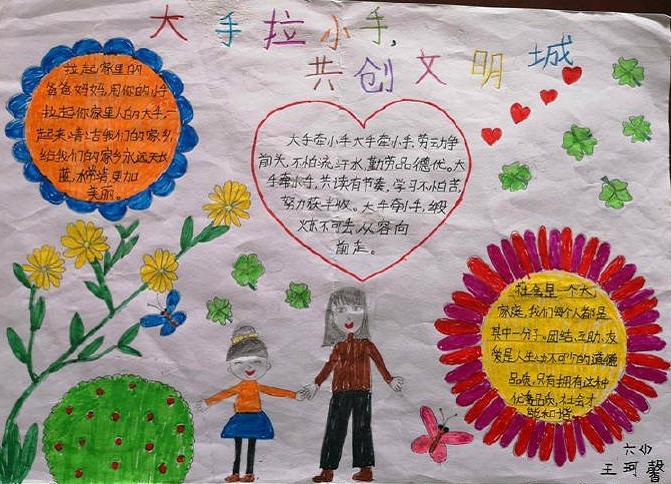 大手拉小手,
共创文明城
拉起家里的
爸爸妈妈,用你的小手
拉起你家里人的大手,一
起来清洁我们的家乡,
给我们的家乡永远天长
蓝,水常清,更加
美丽。
大手牵小手大手牵小手,劳动争
前头,不怕流汗水,勤劳品德优。大
手牵小手,共读有节奏,学习不怕苦,
努力获丰收。大手牵小手,
水不可丢,从容向
前走。
社会是一个大
家庭,我们每个人都是
其中一分子。团结、互助、友
爱是人生中不可少的道德
品质,只有拥有这种
优秀品质,社会才
能和谐。
六小
王珂馨